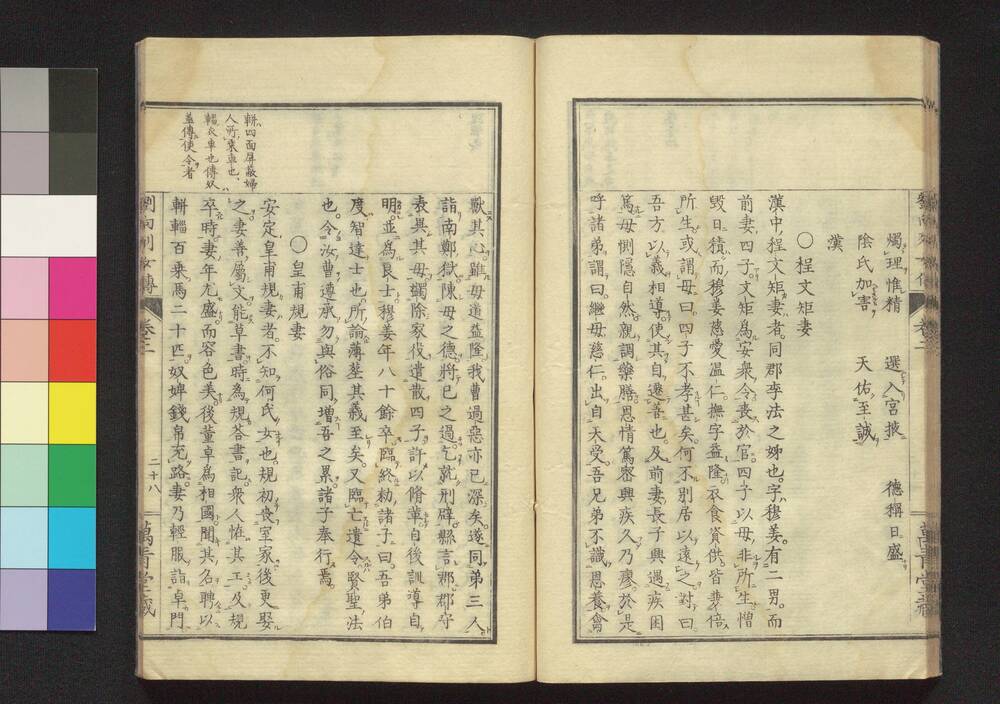 燭理惟精 選入宮掖 德稱日盛
陰氏加害 天佑至誠
漢
〇程文矩妻
漢中程文矩妻者同郡李法之姊也字穆姜有二男而
前妻四子文矩爲安衆令喪於官四子以母非所生憎
毀日積而穆姜慈愛溫仁撫字益隆衣食資供皆兼倍
所生或謂母曰四子不孝甚矣何不別居以遠之對曰
吾方以義相導使其自遷善也及前妻長子興遇疾困
篤母惻隱自然親調藥膳恩情篤密興疾久乃瘳於是
呼諸弟謂曰繼母慈仁出自天受吾兄弟不識恩養禽
獸其心雖母道益隆我曹過惡亦已深矣遂同弟三人
詣南鄭獄陳母之德將已之過乞就刑辟縣言郡郡守
表異其母蠲除家役遣散四子許以脩革自後訓導自
明並爲良士穆姜年八十餘卒臨終勅諸子曰吾弟伯
度智達士也所論薄葬其義至矣又臨亡遺令賢聖法
也令汝曹遵承勿與俗同增吾之累諸子奉行焉
〇皇甫規妻
安定皇甫規妻者不知何氏女也規初喪室家後更娶
之妻善屬文能草書時爲規答書記衆人恠其工及規
卒時妻年尤盛而容色美後董卓爲相國聞其名聘以
輧輜百乘馬二十匹奴婢錢帛充路妻乃輕服詣卓門
輧四面屏蔽婦
人所乘車也
輜衣車也傳奴
並傳使令者
劉向列女傳 卷二 二十八 萬青堂藏